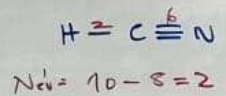 H 2= C 6≡ N
Név = 10 - 8 = 2